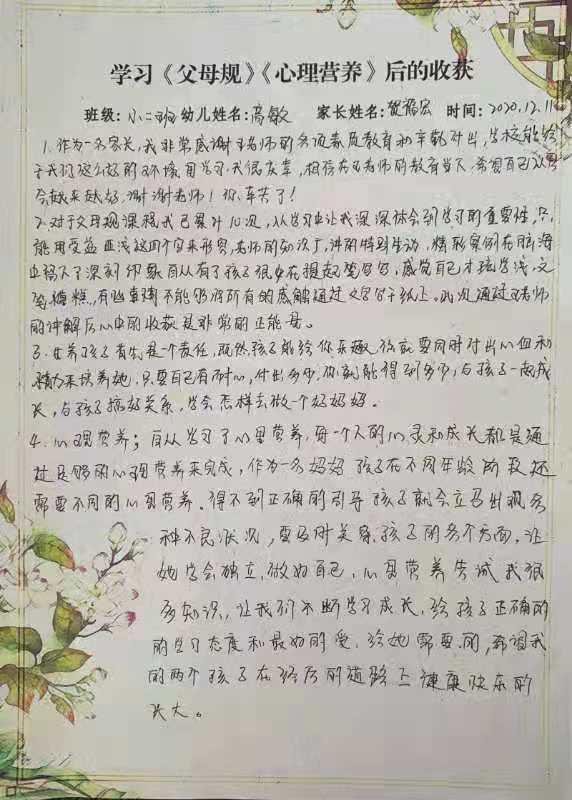 学习《父母规》《心理营养》后的收获
班级：小二班幼儿姓名：高敏 家长姓名：贺 宏 时间：2020.12.11
1.作为一名家长，我非常感谢 老师的 教育和辛勤付出，学校能给
于我们这么好的环境用学习，我很庆幸，相信在 老师的教育当下，希望自己
会越来越好，谢谢老师！您，辛苦了！
2.对于父母规课程我已累计10次，从学习中让我深深体会到学习的重要性，只
能用受益匪浅这四个字来形容，老师的知识广，讲的特别生动，精彩案例在脑海
中留下了深刻印象自从有了孩子很少在提起笔写字，感觉自己才疏学浅，文
笔糟糕，有些章 不能够将所有的感触通过文字写于纸上。此次通过 老师
的讲解后心中的收获是非常的正能量。
3.生养孩子首先是一个责任，既然孩子能给你乐趣，你就要同时付出心血和
精力来培养她，只要自己有耐心，付出多少，你就能得到多少，与孩子一起成
长，与孩子搞好关系，学会怎样去做一个好妈妈。
4.心理营养；自从学习了心里营养，每一个人的心灵和成长都是通
过足够的心理营养来完成，作为一名妈妈孩子在不同年龄阶段还
需要不同的心里营养。得不到正确的引导孩子就会立马出现各
种不良状况，要及时关 孩子的各个方面，让
她学会独立，做好自己，心里营养告诫我很
多知识，让我们不断学习成长，给孩子正确的
的学习态度和最好的爱，给她需要的，希望我
的两个孩子在经后的道路上健康快乐的
长大。